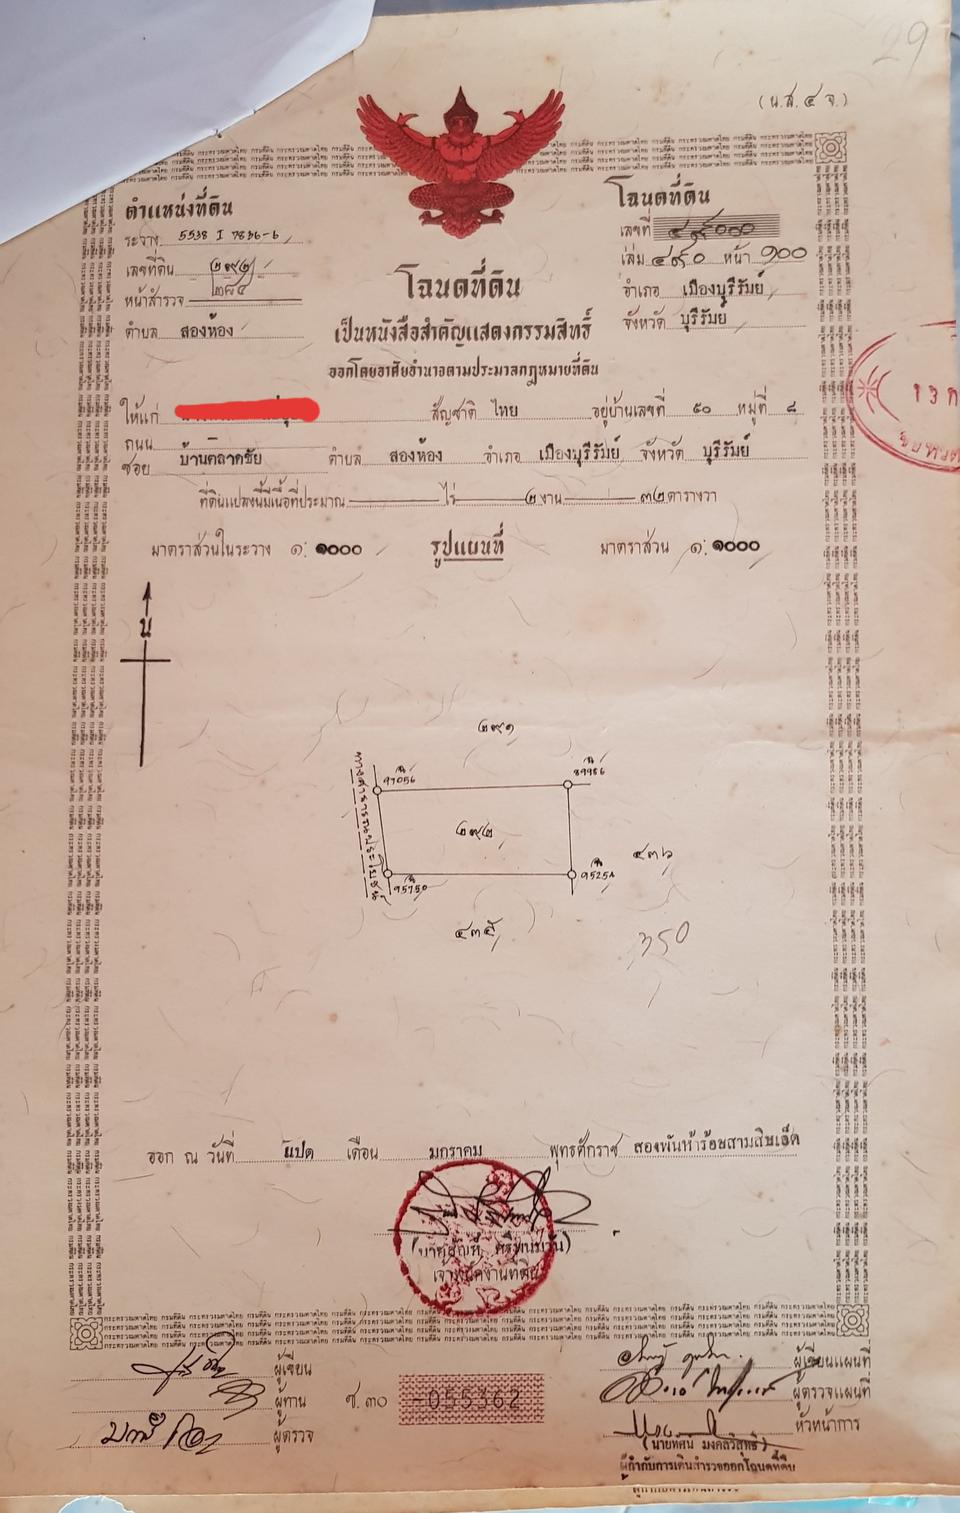 29
(น.ส. ๔ จ.)
ตำแหน่งที่ดิน
ระวาง 5538 I 7836-6
เลขที่ดิน ๒๙๒
หน้าสำรวจ ๒๘๔
ตำบล สองห้อง
โฉนดที่ดิน
เลขที่ ๔๙๐๐๐
เล่ม ๔๙๐ หน้า ๑๐๐
อำเภอ เมืองบุรีรัมย์
จังหวัด บุรีรัมย์
โฉนดที่ดิน
เป็นหนังสือสำคัญแสดงกรรมสิทธิ์
ออกโดยอาศัยอำนาจตามประมวลกฎหมายที่ดิน
ให้แก่ สัญชาติ ไทย อยู่บ้านเลขที่ ๕๐ หมู่ที่ ๘
ถนน
ซอย บ้านตลาดชัย ตำบล สองห้อง อำเภอ เมืองบุรีรัมย์ จังหวัด บุรีรัมย์
ที่ดินแปลงนี้มีเนื้อที่ประมาณ ไร่ ๒ งาน ๓๒ ตารางวา
มาตราส่วนในระวาง ๑:๑๐๐๐ รูปแผนที่ มาตราส่วน ๑:๑๐๐๐
น
๒๙๑
น
97056
น
89986
ทางสาธารณประโยชน์
๒๙๒
๔๓๖
น
95750
น
9525A
๔๓๕
350
ออก ณ วันที่ แปด เดือน มกราคม พุทธศักราช สองพันห้าร้อยสามสิบเอ็ด
เจ้าพนักงานที่ดิน
ผู้เขียน
ผู้ทาน
ผู้ตรวจ
ช. ๓๐ 055362
ผู้เขียนแผนที่
ผู้ตรวจแผนที่
หัวหน้าการ
(นายทศน มงคลวิสุทธิ์)
ผู้กำกับการเดินสำรวจออกโฉนดที่ดิน